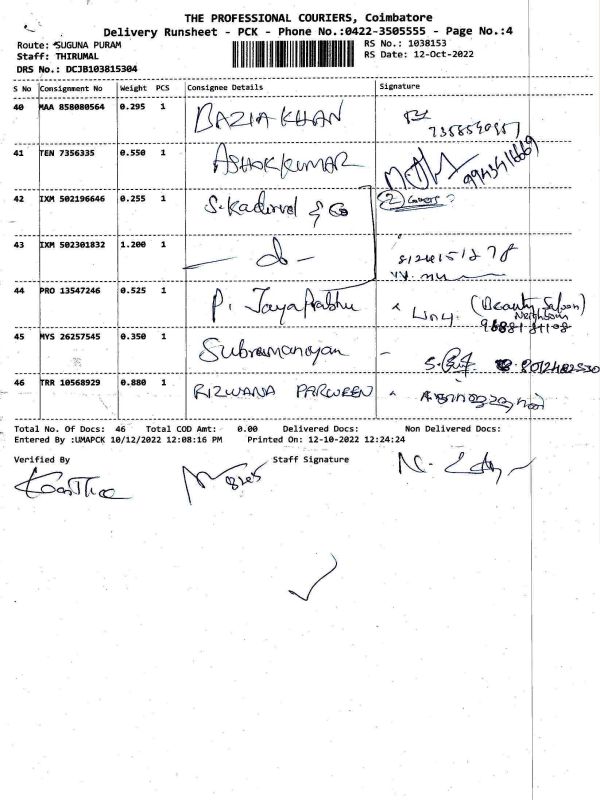 THE PROFESSIONAL COURIERS, Coimbatore
Delivery Runsheet - PCK - Phone No.:0422-3505555 - Page No.:4
Route: SUGUNA PURAM
RS No.: 1038153
Staff: THIRUMAL
RS Date: 12-Oct-2022
DRS No.: DCJB103815304
S No Consignment No Weight PCS Consignee Details Signature
40 MAA 858080564 0.295 1 BAZIA KHAN
7358590957
41 TEN 7356335 0.550 1 ASHOKKUMAR
9943416669
42 IXM 502196646 0.255 1 S. Kadirvel & Co
2 Covers
43 IXM 502301832 1.200 1 - do -
44 PRO 13547246 0.525 1 P. Jayaprabhu (Beauty Saloon)
Neighbour
45 MYS 26257545 0.350 1 Subramaniyan
46 TRR 10568929 0.880 1 RIZWANA PARVEEN
Total No. Of Docs: 46 Total COD Amt: 0.00 Delivered Docs: Non Delivered Docs:
Entered By :UMAPCK 10/12/2022 12:08:16 PM Printed On: 12-10-2022 12:24:24
Verified By Staff Signature